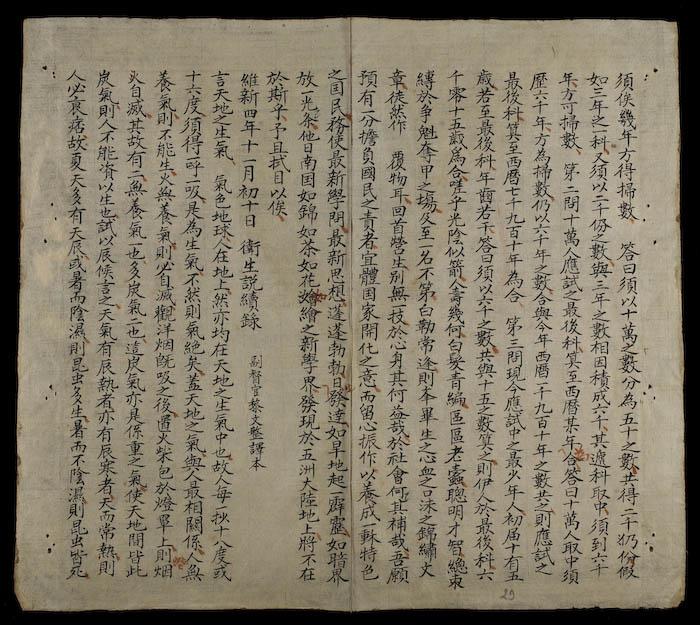 須俟幾年方得掃數 答曰須以十萬之數分為五十之數共得二千仍份假
如三年之一科又須以二千份之數與三年之數相因積成六千其遞科取中須到六千
年方可掃數 第二問十萬人應試之最後科算至西曆某年合答曰十萬人取中須
歷六千年方為掃數仍以六千年之數合與今年西曆一千九百十年之數共之則應試之
最後科算至西曆七千九百十年為合 第三問現今應試中之最少年人初届十有五
歲若至最後科年齒若干答曰須以六千之數共與十五之數算之則伊人於最後科六
千零十五歲為合嗟乎光陰似箭人壽幾何白髮青編區區老蠹聰明才智總束
縛於爭魁奪甲之塲及至一名不第白勒常途則本畢生之心血之口沫之錦繡文
章徒然作 覆物耳回首營生別無一技於心身其何益哉於社會何其補哉吾願
預有一分擔負國民之責者宜體國家開化之意而留心振作以養成一種特色
之国民務使最新學問最新思想蓬蓬勃勃日發達如旱地起一霹靂如暗界
放一光条他日南国如錦如茶如花如繪之新學界發現於五洲大陸地上將不在
於斯乎予且拭目以俟
維新四年十一月初十日 衛生說續錄 副督官黎文整譯本
言天地之生氣 氣色地球人在地上然亦均在天地之生氣中也故人每一抄十八度或
十六度須得一呼一吸是為生氣不然則氣絕矣蓋天地之氣與人最相關係人無
養氣則不能生火無養氣則必自滅觀洋烟既吸之後置火柴包於燈罩上則烟
火自滅其故有二無養氣一也多炭氣二也這炭氣亦是係重之氣使天地間皆此
炭氣則人不能資以生也試以辰候言之天氣有辰熱者亦有辰寒者天而常熱則
人必衰痞故夏天多有天辰或暑而陰濕則昆虫多生暑而不陰濕則昆虫皆死
29